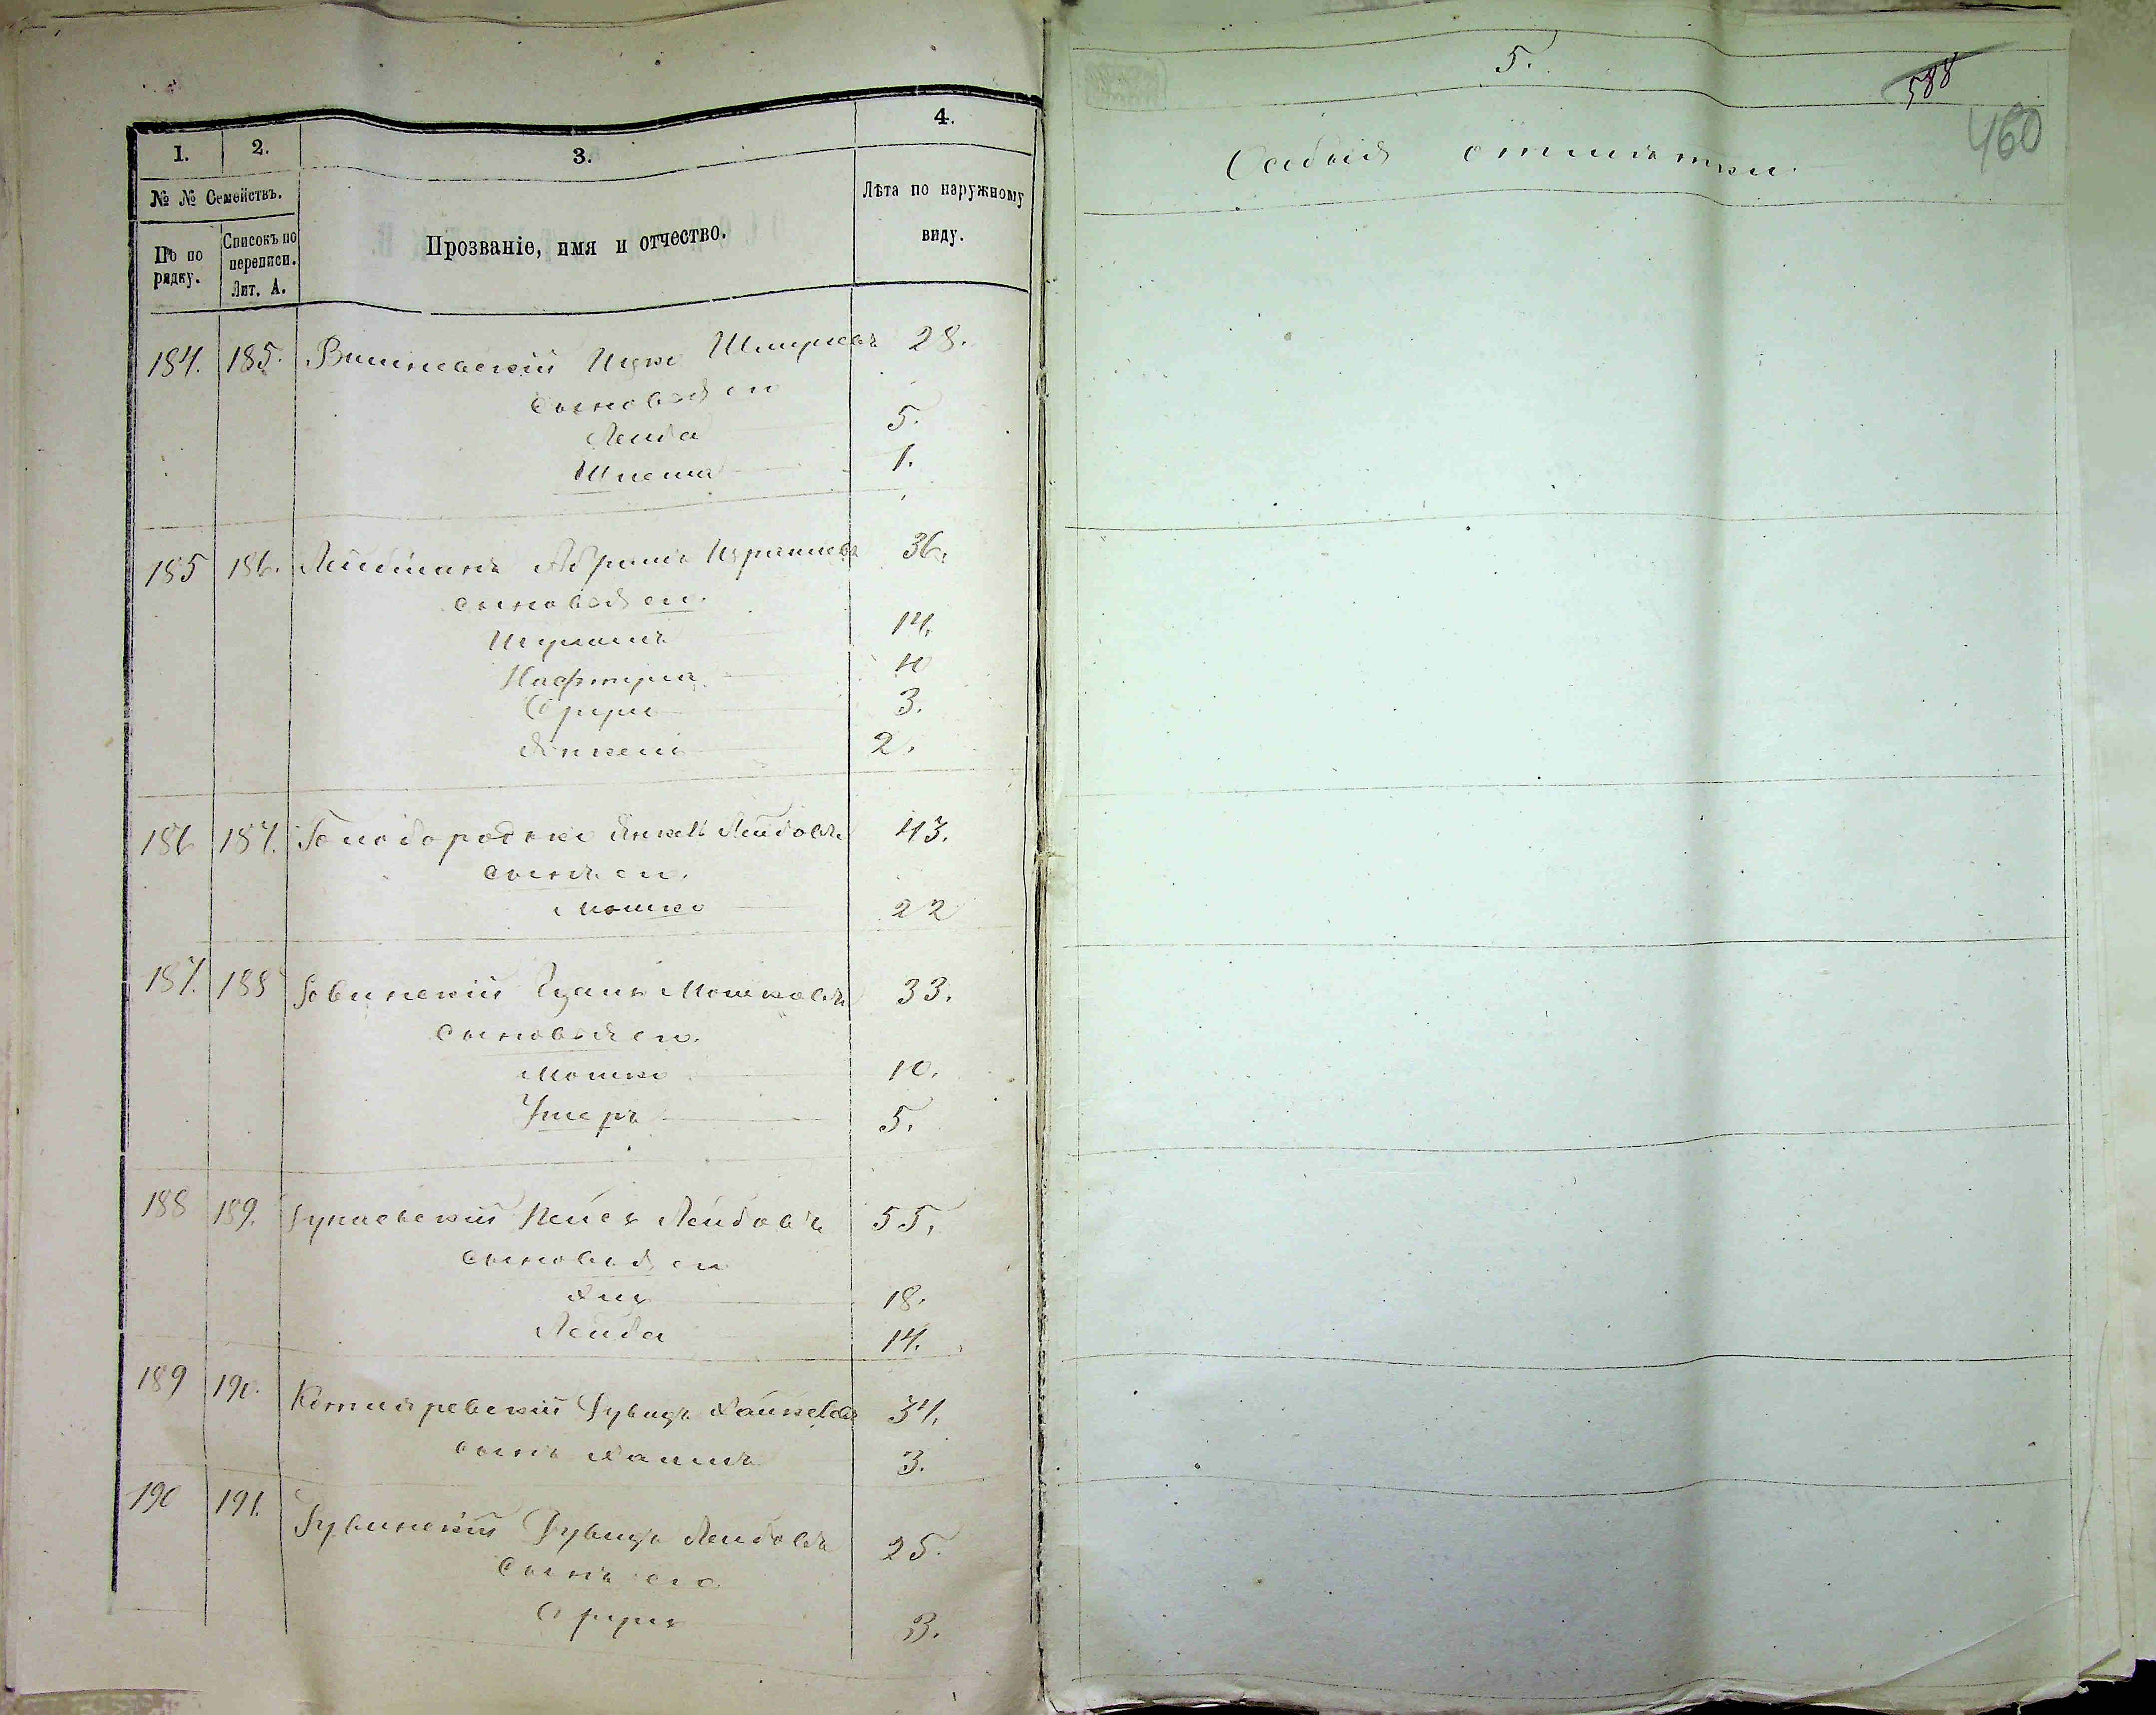 1. 2. 3. 4.
№ № Семействъ.
По по рядку.
Списокъ по переписи. Лит. А.
Прозваніе, имя и отчество.
Лѣта по наружному виду.
184. 185. Вишневскій Ицко Шмулевъ 28.
сыновья его
Лейба 5.
1.
185 186. Лейбманъ Абрамъ Израилевъ 36.
сыновья его.
14.
Нафтула 10
Сруль 3.
Янкель 2.
186 187. Голобородько Янкель Лейбовъ 43.
сынъ его.
Мошко 22
187. 188 Мошковъ 33.
сыновья его.
Мошко 10.
Ушеръ 5.
188 189. Лейбовъ 55.
сыновья его
18.
Лейба 14.
189 190. Котляревскій Дувидъ Хаимовъ 34.
сынъ Хаимъ 3.
190 191. Дувидъ Лейбовъ 25.
сынъ его.
Сруль 3.
5.
588
460
Особыя отмѣтки.